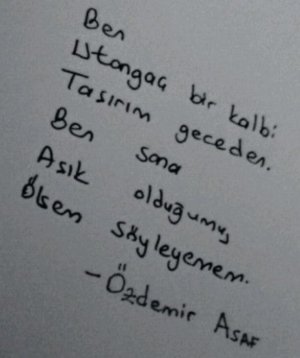 Ben
Utangaç bir kalbi
Taşırım geceden.
Ben sana
Aşık olduğumu,
Ölsem söyleyemem.
- Özdemir ASAF